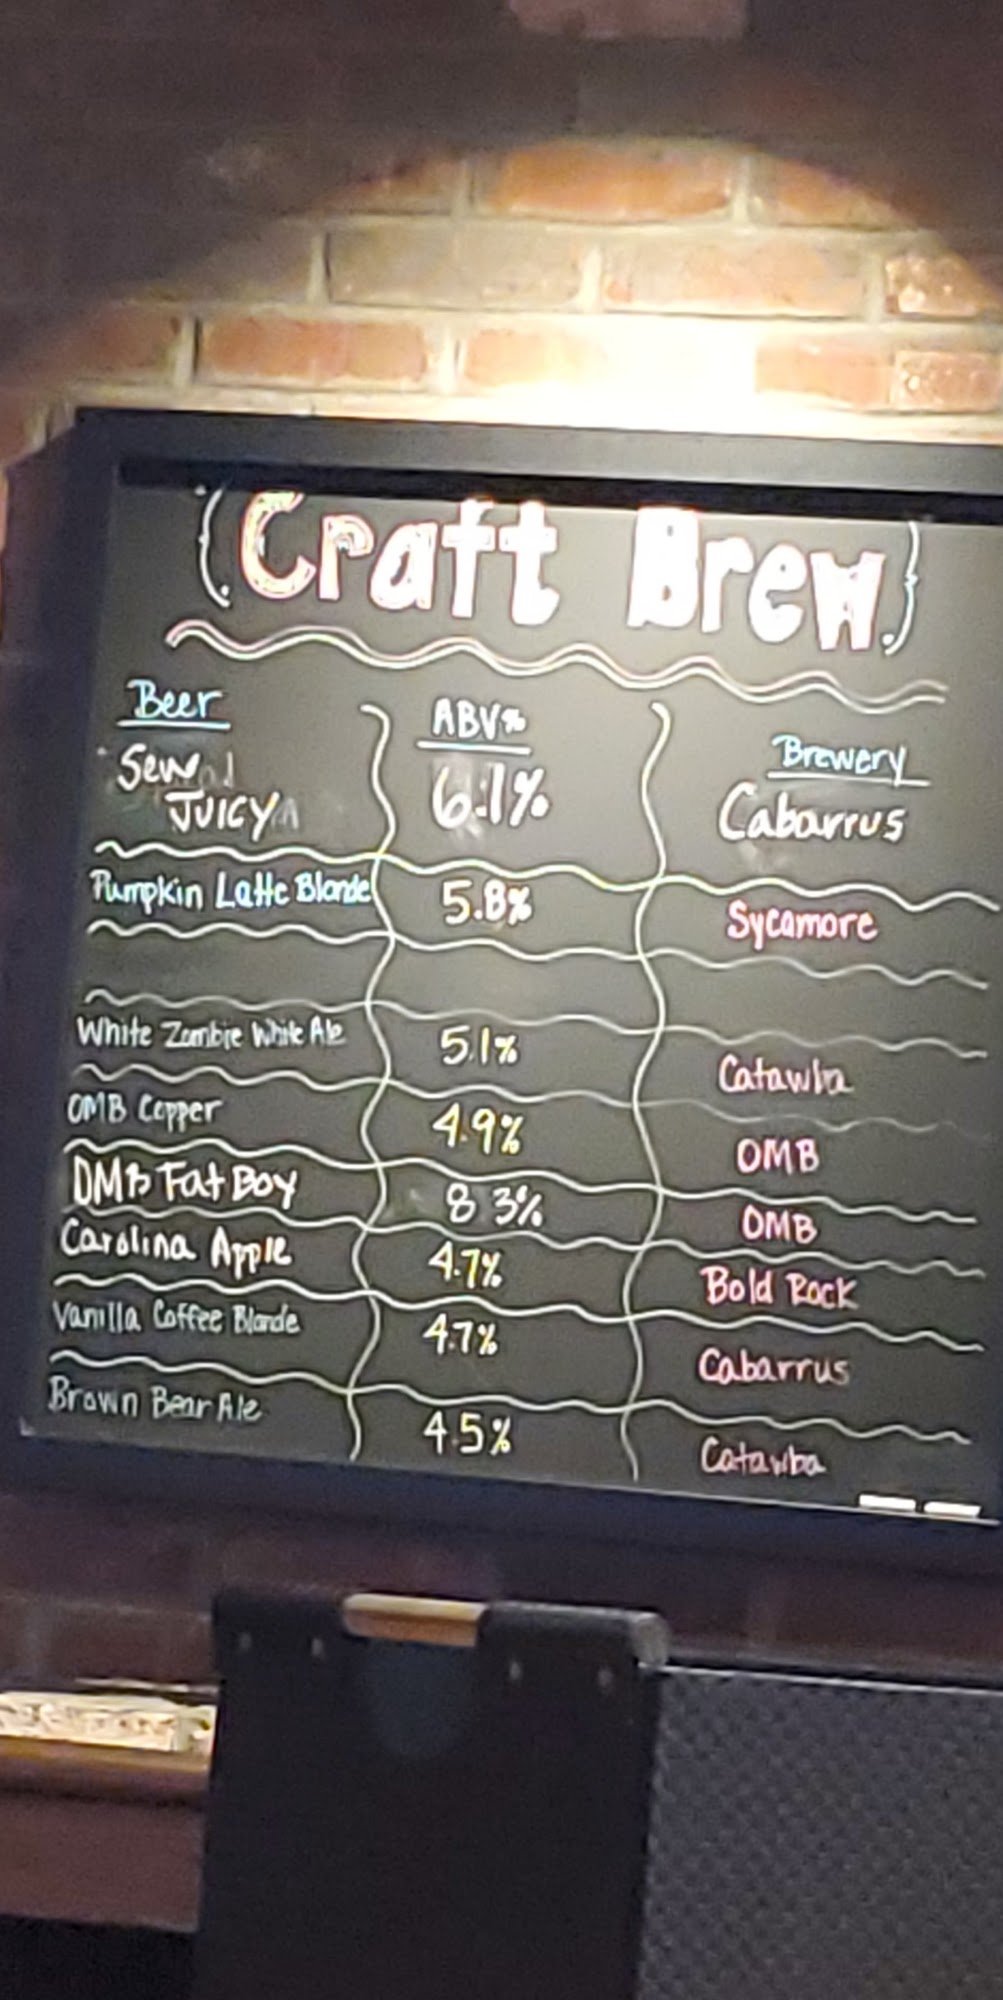 {Craft Brew.}
Beer ABV% Brewery
Sew
JUICY 6.1% Cabarrus
Pumpkin Latte Blonde 5.8% Sycamore
White Zombie White Ale 5.1% Catawba
OMB Copper 4.9% OMB
OMB Fat Boy 8.3% OMB
Carolina Apple 4.7% Bold Rock
Vanilla Coffee Blonde 4.7% Cabarrus
Brown Bear Ale 4.5% Catawba